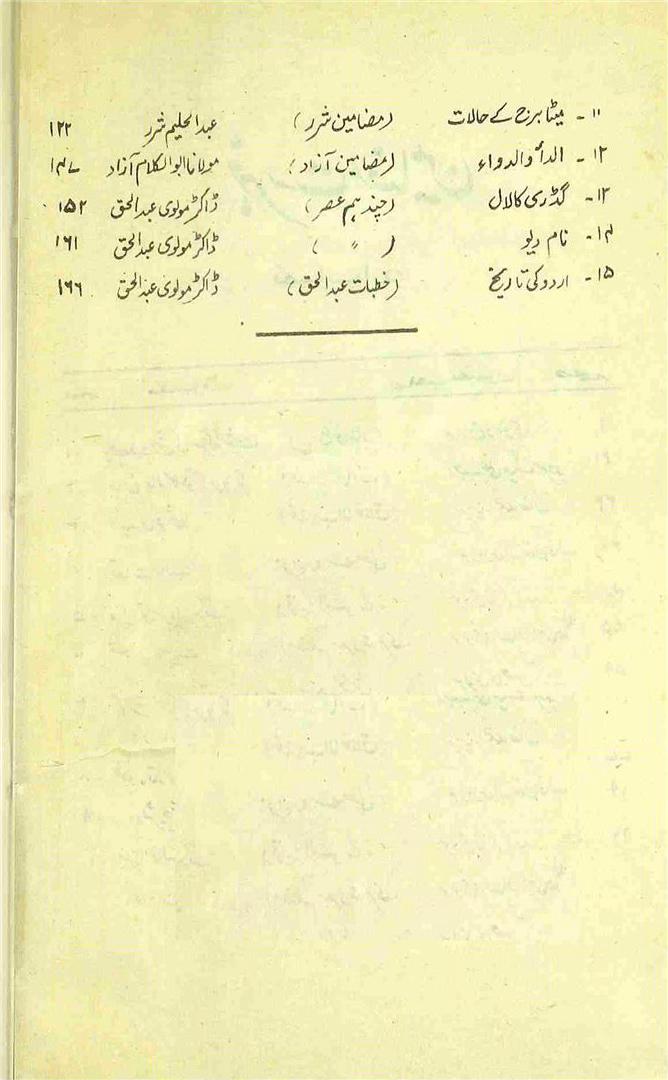 ۱۱ - مٹیا برج کے حالات (مضامین شرر) عبدالحلیم شرر ۱۲۲
۱۲ - الداؤ والدواء (مضامین آزاد) مولانا ابوالکلام آزاد ۱۴۷
۱۳ - گڈری کا لال (چند ہم عصر) ڈاکٹر مولوی عبدالحق ۱۵۲
۱۴ - نام دیو ( " ) ڈاکٹر مولوی عبدالحق ۱۶۱
۱۵ - اردو کی تاریخ (خطبات عبدالحق) ڈاکٹر مولوی عبدالحق ۱۶۶